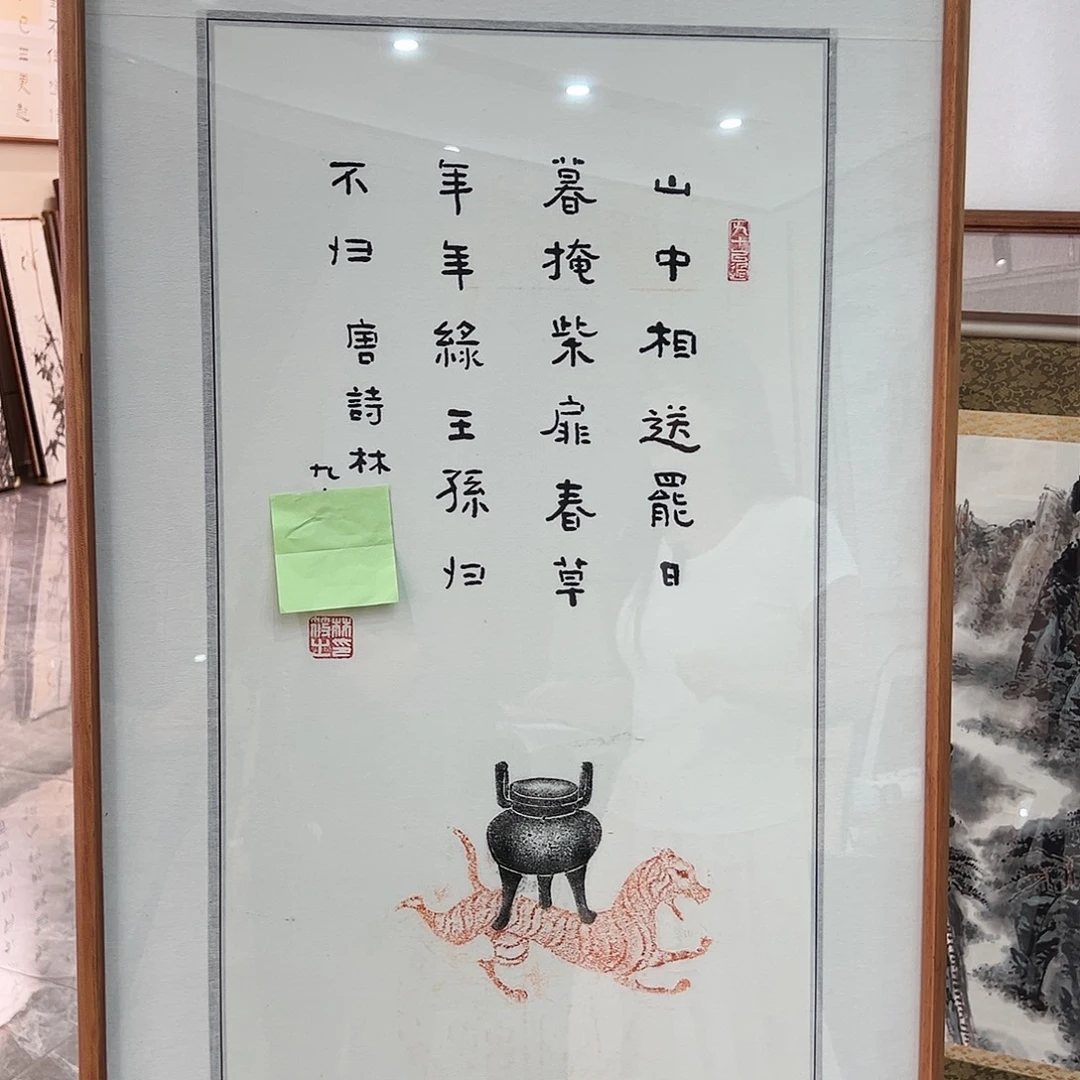 山中相送罷日
暮掩柴扉春草
年年綠王孫归
不归
唐詩林
九